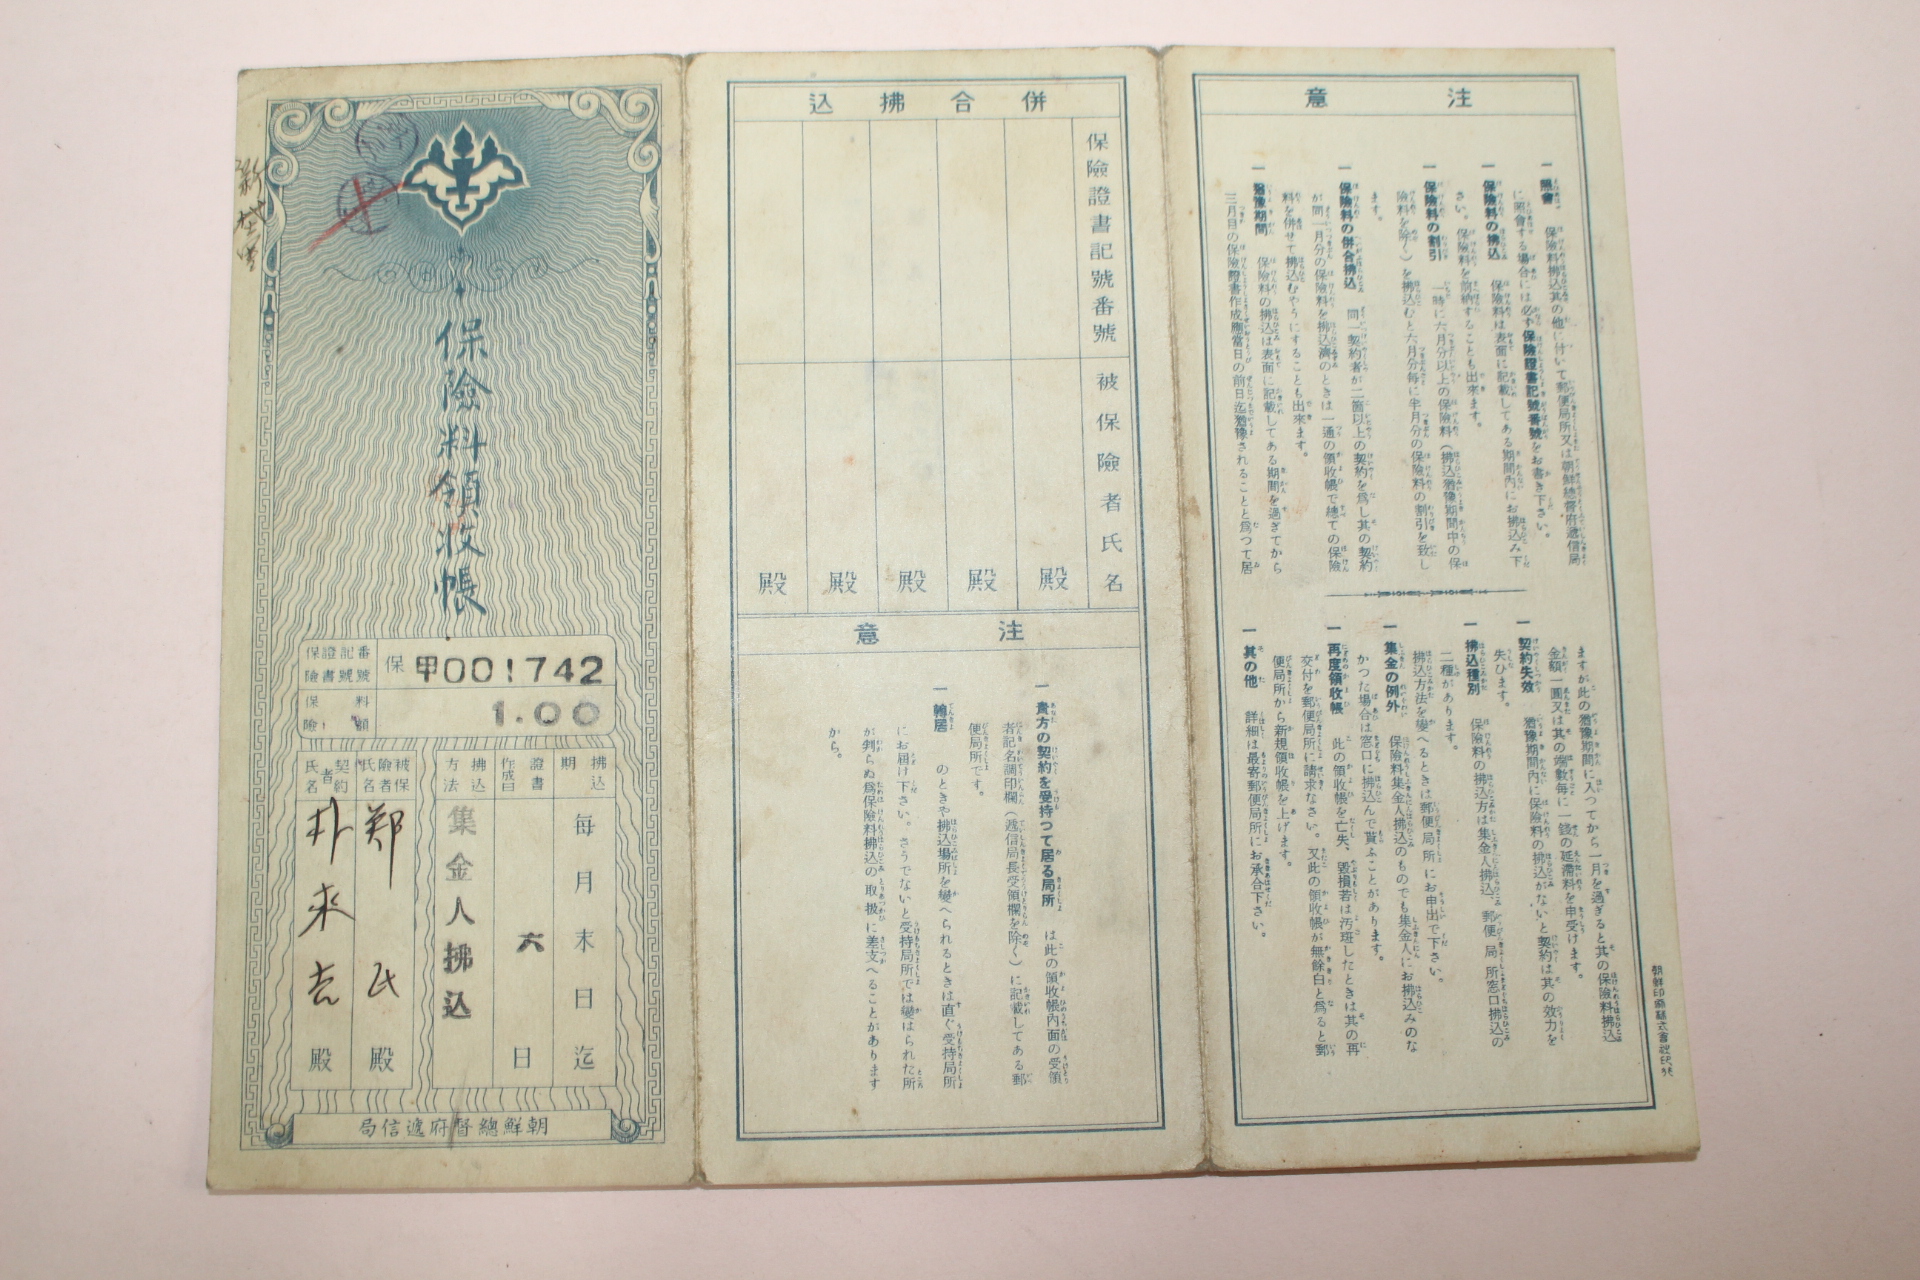 保險料領收帳
保險證書記號番號
保 甲001742
保險料額
1.00
拂込期
每月末日迄
證書作成日
六日
拂込方法
集金人拂込
被保險者氏名
鄭氏殿
契約者氏名
朴來吉殿
朝鮮總督府遞信局
併合拂込
保險證書記號番號
被保險者氏名
殿
殿
殿
殿
殿
注意
一 貴方の契約を受持つて居る局所 は此の領收帳內面の受領
者記名調印欄(遞信局長受領欄を除く)に記載してある郵
便局所です。
一 轉居 のときや拂込場所を變へられるときは直ぐ受持局所
にお屆け下さい。さうでないと受持局所では變はられた所
が判らぬ爲保險料拂込の取扱に差支へることがあります
から。
注意
一 照會 保險料拂込其の他に付いて郵便局所又は朝鮮總督府遞信局
に照會する場合には必ず保險證書記號番號をお書き下さい。
一 保險料の拂込 保險料は表面に記載してある期間內にお拂込み下
さい。保險料を前納することも出來ます。
一 保險料の割引 一時に六月分以上の保險料(拂込猶豫期間中の保
險料を除く)を拂込むと六月分每に半月分の保險料の割引を致し
ます。
一 保險料の併合拂込 同一契約者が二箇以上の契約を爲し其の契約
が同一月分の保險料を拂込濟のときは一通の領收帳で總ての保險
料を併せて拂込むやうにすることも出來ます。
一 猶豫期間 保險料の拂込は表面に記載してある期間を過ぎてから
三月目の保險證書作成應當日の前日迄猶豫されることと爲つて居
ますが此の猶豫期間に入つてから一月を過ぎると其の保險料拂込
金額一圓又は其の端數每に一錢の延滯料を申受けます。
一 契約失效 猶豫期間內に保險料の拂込がないと契約は其の效力を
失ひます。
一 拂込種別 保險料の拂込方は集金人拂込、郵便局所窓口拂込の
二種があります。
拂込方法を變へるときは郵便局所にお申出で下さい。
一 集金の例外 保險料集金人拂込のものでも集金人にお拂込みのな
かつた場合は窓口に拂込んで貰ふことがあります。
一 再度領收帳 此の領收帳を亡失、毀損若は汚斑したときは其の再
交付を郵便局所に請求なさい。又此の領收帳が無餘白と爲ると郵
便局所から新規領收帳を上げます。
一 其の他 詳細は最寄郵便局所にお承合下さい。
朝鮮印刷株式會社印行